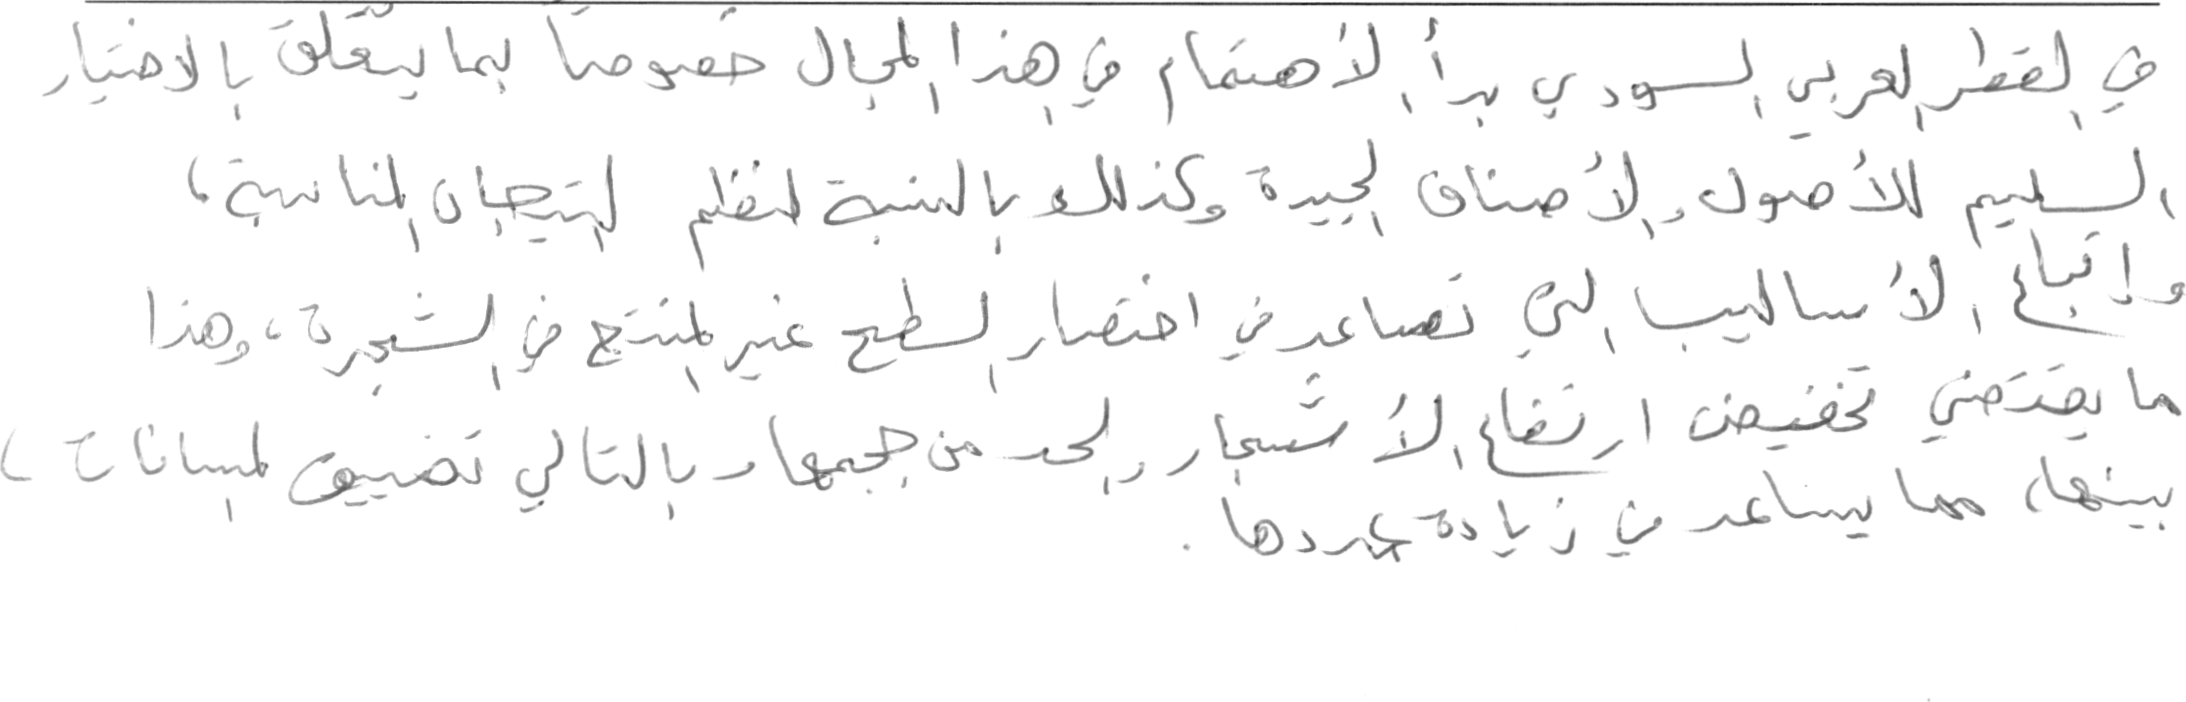 في القطر العربي السودي بدأ الأهتمام في هذا المجال خصوصاً بما يتعلق بالاختيار
السليم للأصول والأصناف الجيدة وكذلك بالنسبة لنظم التيجان المناسبة،
وإتباع الأساليب التي تساعد في اختصار السطح غير المنتج في الشجرة، وهذا
ما يقتضي تخفيض ارتفاع الأشجار والحد من حجمها وبالتالي تضييق المسافات
بينها، مما يساعد في زيادة عددها.